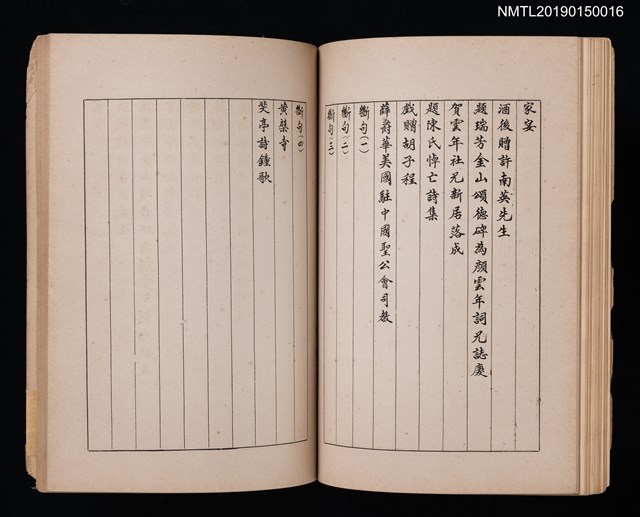 NMTL20190150016
家宴
酒後贈許南英先生
題瑞芳金山頌德碑為顏雲年詞兄誌慶
賀雲年社兄新居落成
題陳氏悼亡詩集
戲贈胡子程
薛爵華美國駐中國聖公會司教
斷句(一)
斷句(二)
斷句(三)
斷句(四)
黃檗寺
斐亭詩鐘歌